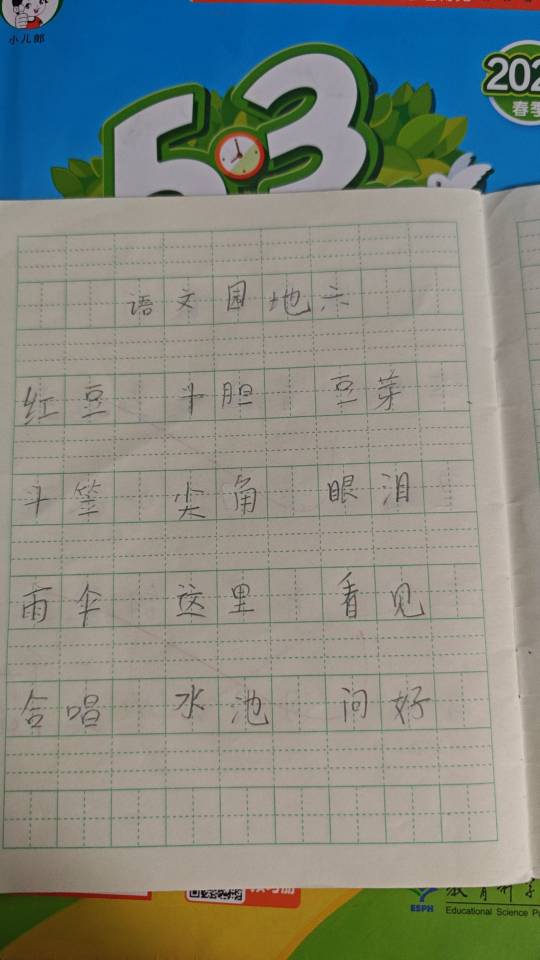 小儿郎
53
202
春季
语文园地六
红豆 斗胆 豆芽
斗笠 尖角 眼泪
雨伞 这里 看见
合唱 水池 问好
ESPH
教育科学
Educational Science P